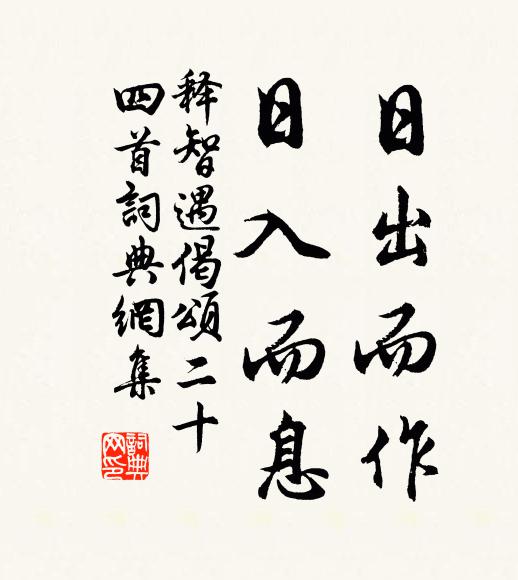 日出而作
日入而息
释智遇偈頌二十
四首詞典網集
詞典
网印